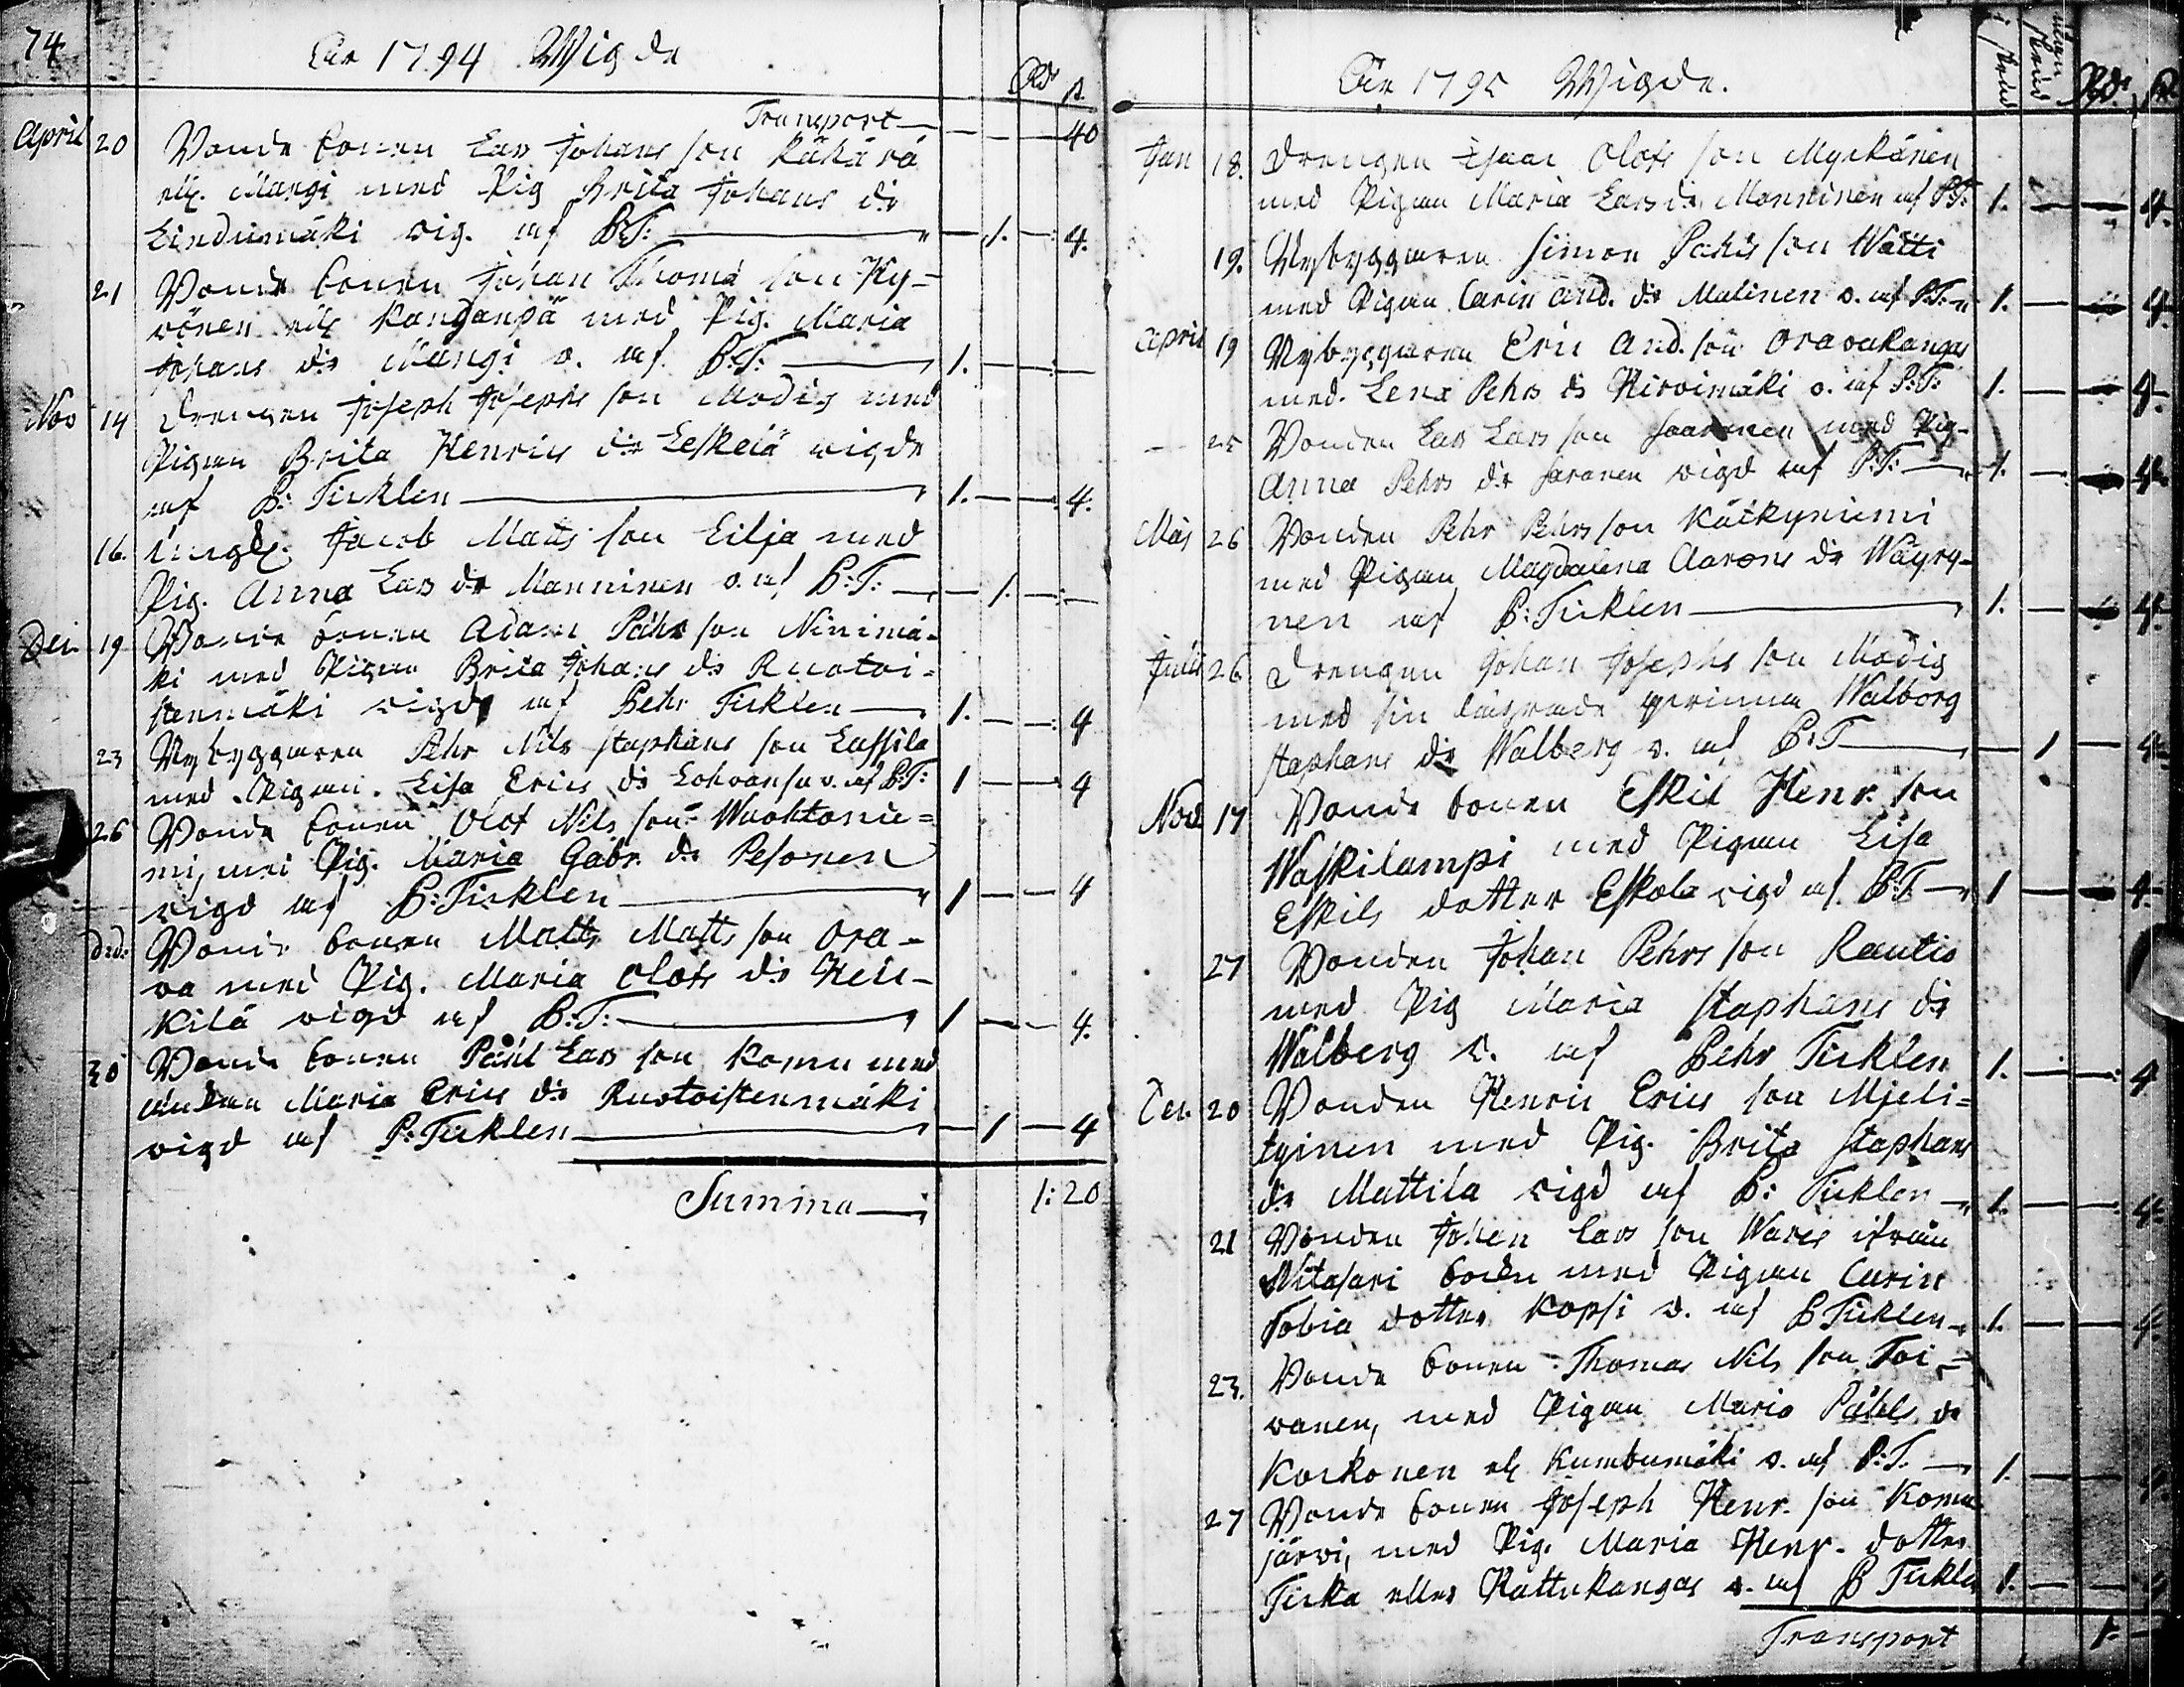 74
Åhr 1794 Wigde
Rd s.
Transport — 40
April 20 Bonde Sonen Lars Johans son Käkärä
ell. Mangi med Pig Brita Johans dr
Lindumäki vig. af P:T: — 1. — 4.
21 Bonde Sonen Johan Thoma son Hy-
vönen ell Kanganpä med Pig. Maria
Johans dr Mangi v. af P:T: — 1. —
Nov 14 Drengen Joseph Josephs son Modig med
Pigan Brita Henrics dr Leskelä vigde
af P: Ticklen — 1. — 4.
16. Ungk. Jacob Matts son Eilja med
Pig. Anna Lars dr Manninen v. af P:T: — 1. —
Dec 19 Bonde Sonen Adam Pehrs son Ninimä-
ki med Pigan Brita Johans dr Ruotoi-
stenmäki vigd af Pehr Ticklen — 1. — 4
23 Nybyggaren Pehr Nils Staphans son Lassila
med Pigan Lisa Erics dr Lohvansu v. af P:T: 1 — 4
26 Bonde Sonen Olof Nils son Wuoktonie-
mi, med Pig. Maria Gabr. dr Pesonen
vigd af P: Ticklen — 1 — 4
dr d: Bonde Sonen Matts Matts son Ora-
va med Pig. Maria Olofs dr Hei-
kilä vigd af P:T: — 1 — 4.
30 Bonde Sonen Påhl Lars son Komu med
Änkan Maria Erics dr Ruotoistenmäki
vigd af P: Ticklen — 1 — 4
Summa — 1: 20
Åhr 1795 Wigde.
Rd. s
Jan 18. Drengen Isaac Olofs son Myckänen
med Pigan Maria Lars dr Manninen af P:T: 1. — 4.
19. Nybyggaren Simon Påhls son Wätti
med Pigan Carin And. dr Malinen v. af P:T. 1. — 4.
April 19 Nybyggaren Eric And. son Oravakangas
med Lena Pehrs dr Hirvimäki v. af P:T: 1. — 4.
25 Bonden Lars Lars son Saarinen med Pig-
Anna Pehrs dr Saranen vigd af P:T: — 1. — 4.
Maj 26 Bonden Pehr Pehrs son Käckyniemi
med Pigan Magdalena Aarons dr Wäyry-
nen af P: Ticklen — 1. — 4.
Julii 26 Drengen Johan Josephs son Modig
med sin lägrade qvinna Walborg
Staphans dr Walberg v. af P:T — 1 — 4.
Nov 17 Bonde Sonen Eskil Henr. son
Waskilampi med Pigan Lisa
Eskils dotter Eskola vigd af P:T — 1 — 4.
27 Bonden Johan Pehrs son Rautio
med Pig Maria Staphans dr
Walberg v. af Pehr Ticklen 1. — 4
Dec. 20 Bonden Henric Erics son Mieli-
tyinen med Pig. Brita Staphans
dr Mattila vigd af P: Ticklen — 1. — 4.
21 Bonden Johan Lars son Wares ifrån
Nitasari boden med Pigan Carin
Tobia dotter Kopsi v. af P Ticklen — 1. — 4.
23. Bonde Sonen Thomas Nils son Toi-
vanen, med Pigan Maria Påhls dr
Korkonen ell Kumbumäki v. af P:T. — 1. — 4.
27 Bonde Sonen Joseph Henr. son Komu
järvi, med Pig. Maria Henr. dotter
Ticka eller Rättukangas v. af P Ticklen 1. — 4
Transport 1. —